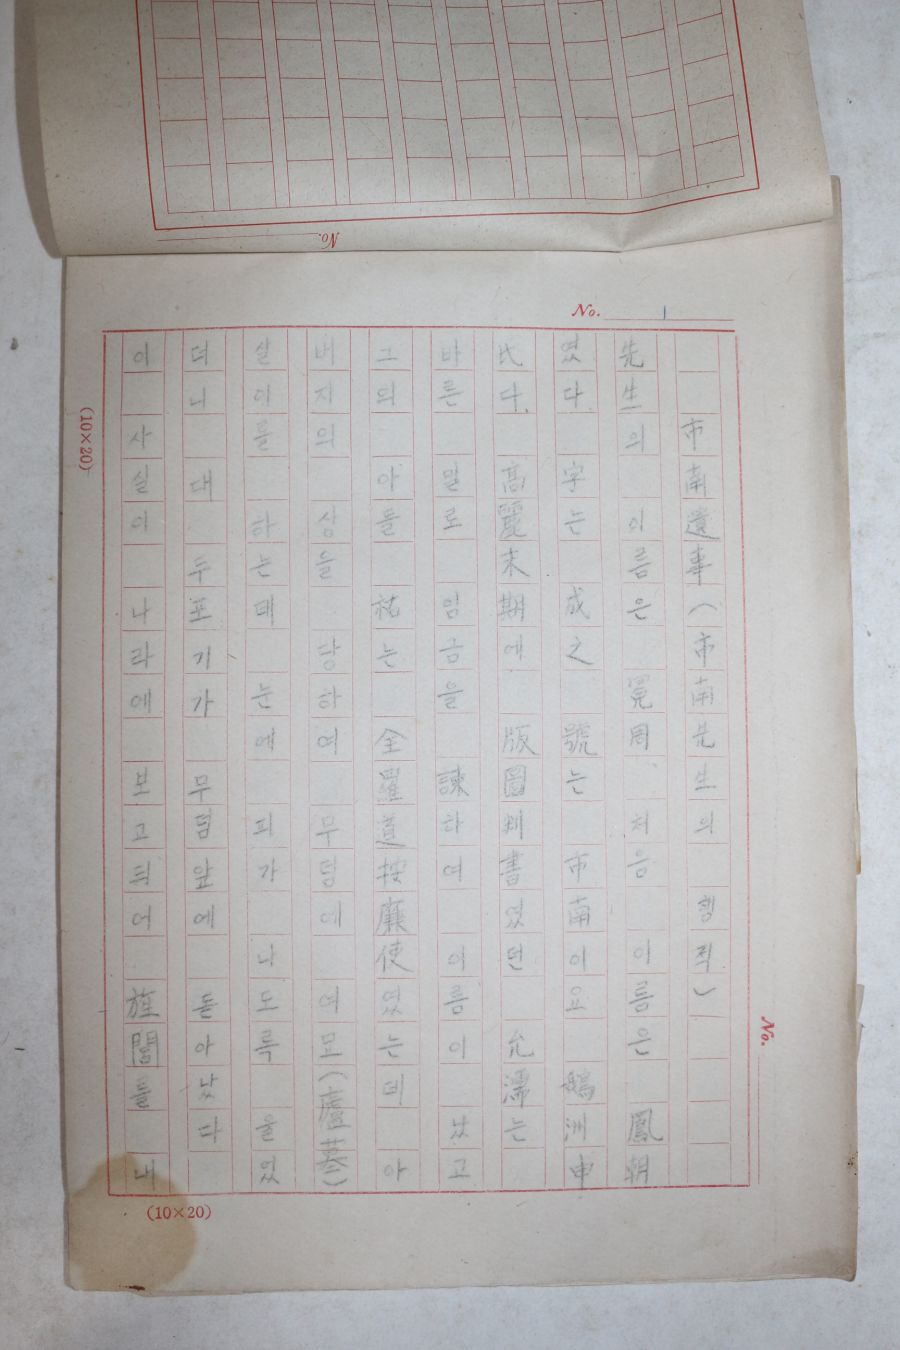 No. 1
市南遺事(市南先生의 행적)
先生의 이름은 冕周 처음 이름은 鳳朝
였다. 字는 成之 號는 市南이요 鵝洲申
氏다. 高麗末期에 版圖判書였던 允濡는
바른 말로 임금을 諫하여 이름이 났고
그의 아들 祐는 全羅道按廉使였는데 아
버지의 상을 당하여 무덤에 여묘(廬墓)
살이를 하는데 눈에 피가 나도록 울었
더니 대 두포기가 무덤앞에 돋아났다
이 사실이 나라에 보고되어 旌閭를 내
(10×20)
(10×20)
No.
No.